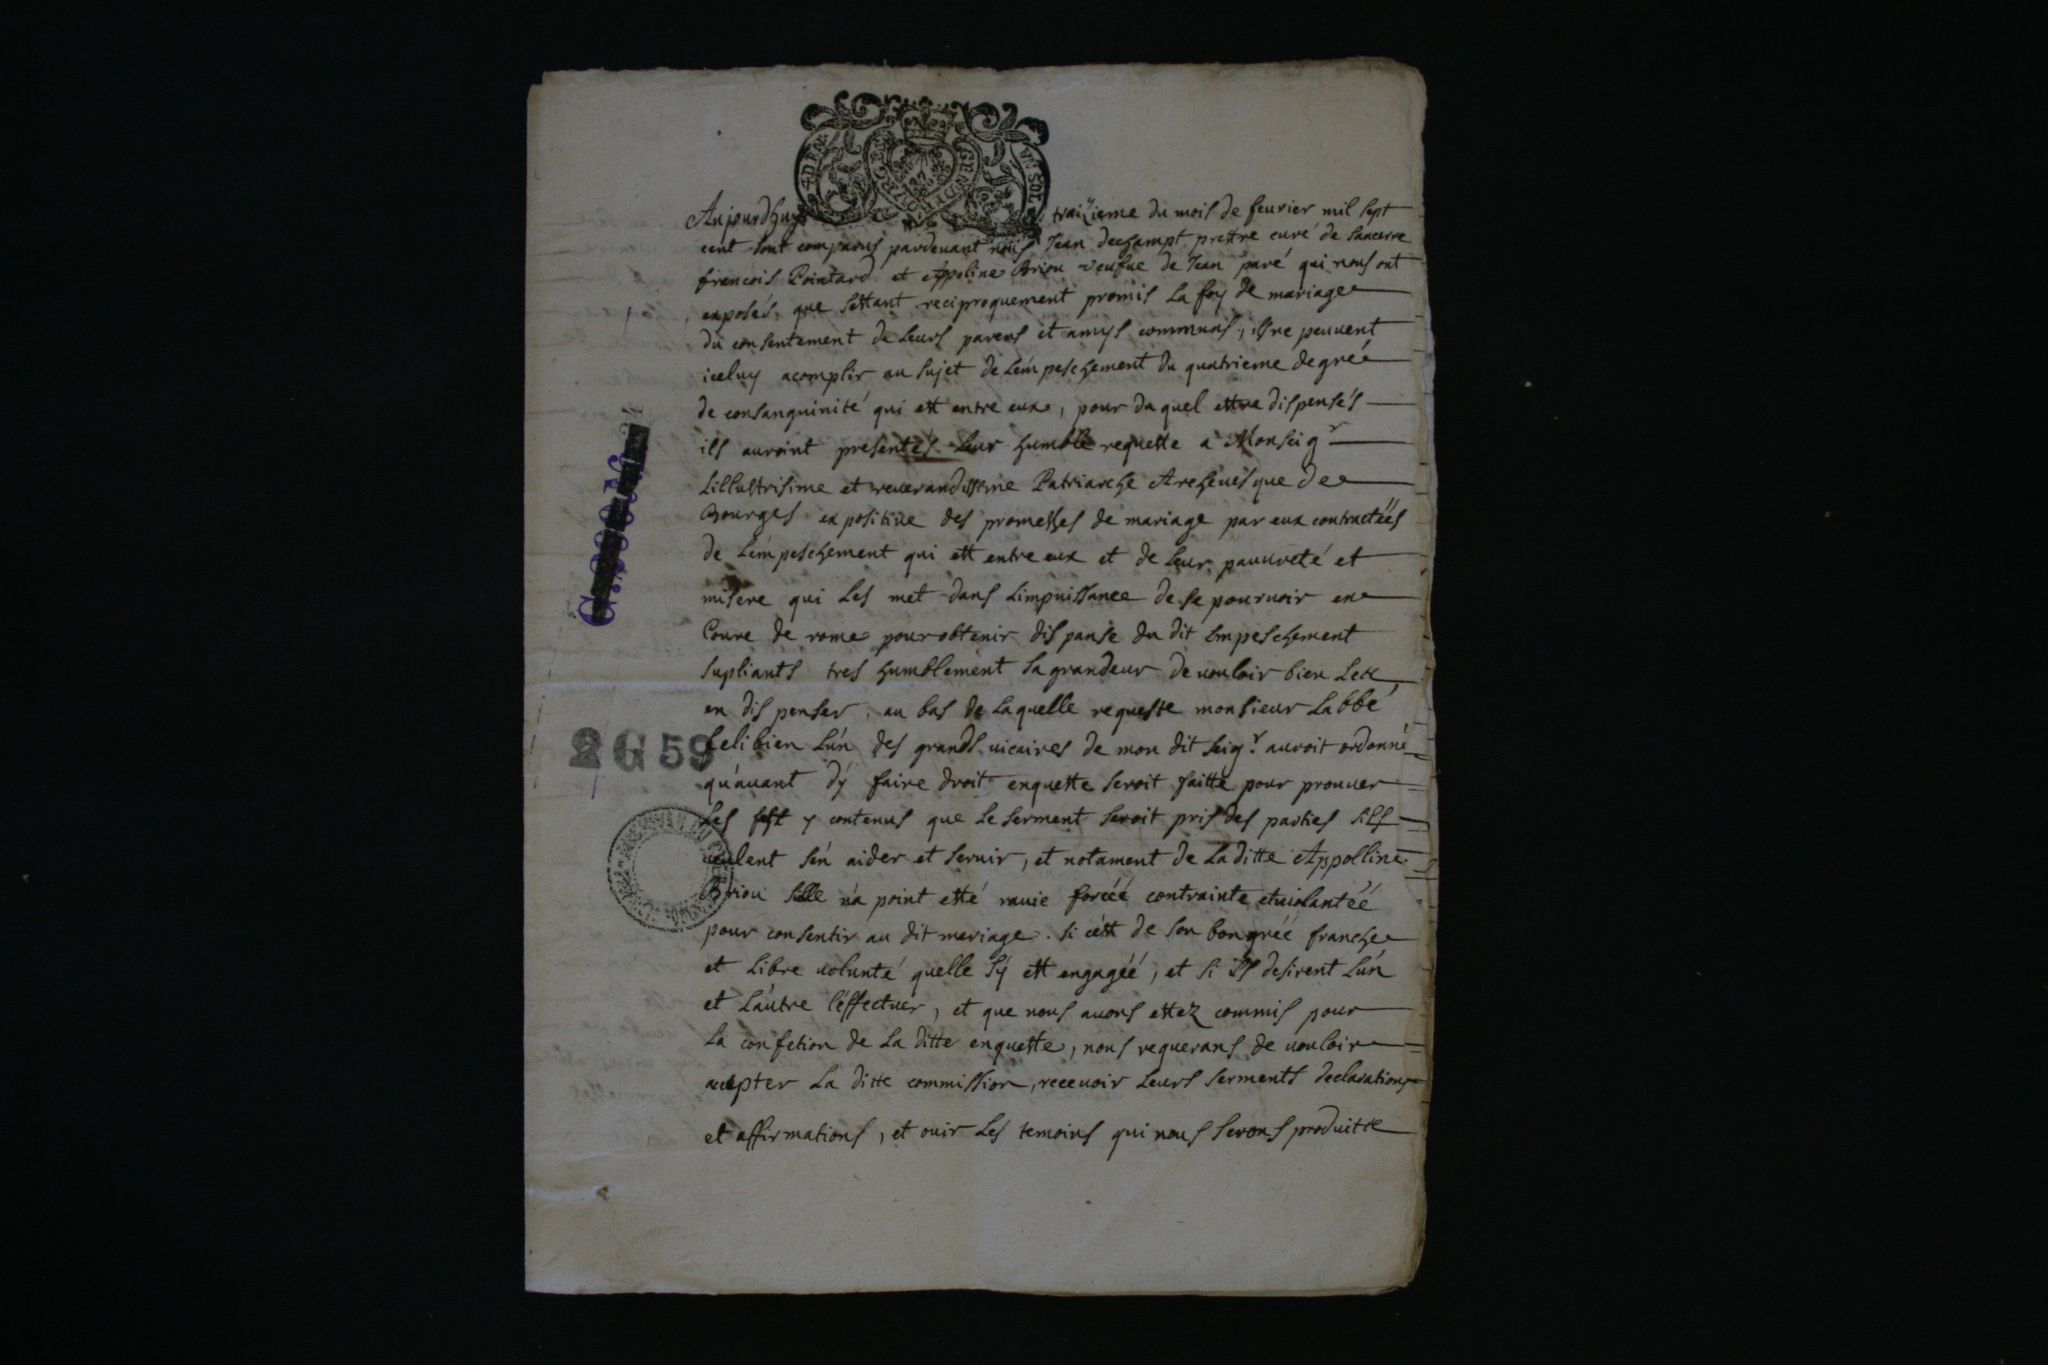 Aujourdhuy traizieme du mois de feurier mil sept
cent sont comparus pardeuant nous Jean dechampt prestre curé de sancerre
francois Pointard et Appoline Briou veufue de Jean paré qui nous ont
exposés que sestant reciproquement promis La foy de mariage
du consentement de Leurs parens et amys communs, ils ne peuuent
iceluy acomplir au sujet de Lempeschement du quatrieme degré
de consanguinité qui est entre eux, pour du quel estre dispensés
ils auroint presentés Leur humble requeste a Monseigr
Lillustrisime et reuerandissime Patriarche Archeuesque de
Bourges expositiue des promesses de mariage par eux contractéés
de Lempeschement qui est entre eux et de Leur pauureté et
misere qui Les met dans Limpuissance de se pouruoir en
Coure de rome pour obtenir dispanse du dit Empeschement
supliants tres humblement sa grandeur de uouloir bien Les
en dispenser, au bas de Laquelle requeste monsieur Labbé
felibien Lún des grands uicaires de mon dit seigr auroit ordonné
2 G 59
qúauant dý faire droit enqueste seroit faitte pour prouuer
Les fest y contenus que Le serment seroit pris des parties sils
ueulent sén aider et seruir, et notament de La ditte Appolline
Briou sille ná point esté rauie forcéé contrainte et uiolantéé
pour consentir au dit mariage. si cést de son bon gréé franche
et Libre uolunté quelle sý est engagéé, et si ils desirent Lún
et Láutre léffectuer, et que nous auons estez commis pour
La confetion de La ditte enqueste, nous requerans de uouloir
accepter La ditte commission, receuoir Leurs serments declarations
et affirmations, et ouir Les temoins qui nous serons produitte